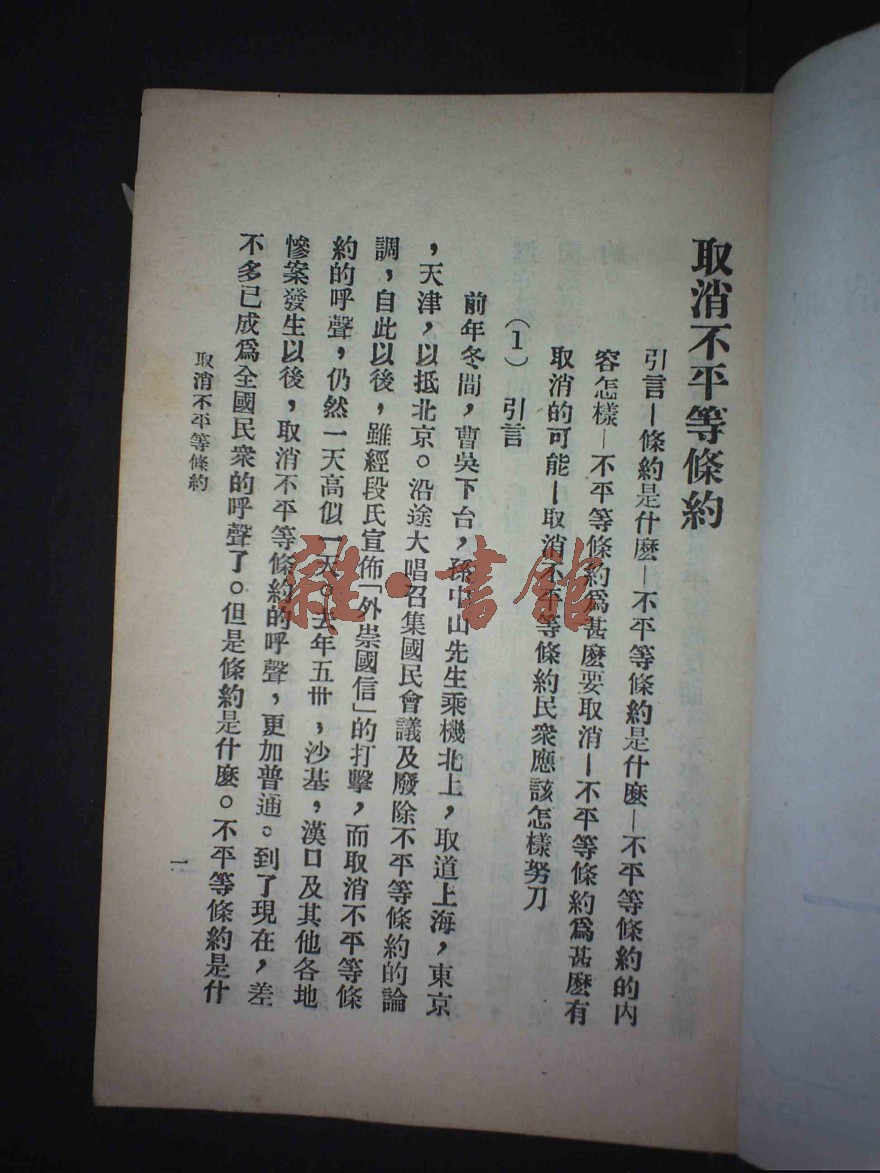 取消不平等條約
引言—條約是什麽—不平等條約是什麽—不平等條約的內
容怎樣—不平等條約爲甚麽要取消—不平等條約爲甚麽有
取消的可能—取消不平等條約民衆應該怎樣努刀
（1）引言
前年冬間，曹吳下台，孫中山先生乘機北上，取道上海，東京
，天津，以抵北京。沿途大唱召集國民會議及廢除不平等條約的論
調，自此以後，雖經段氏宣佈「外崇國信」的打擊，而取消不平等條
約的呼聲，仍然一天高似一天。去年五卅，沙基，漢口及其他各地
慘案發生以後，取消不平等條約的呼聲，更加普通。到了現在，差
不多已成爲全國民衆的呼聲了。但是條約是什麽。不平等條約是什
取消不平等條約
一
雜·書館